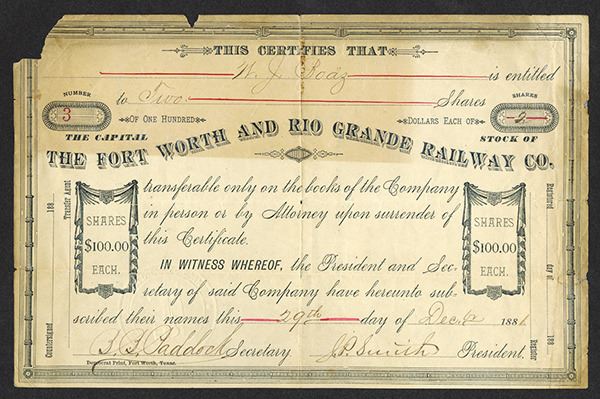 THIS CERTIFIES THAT
W. J. Boaz is entitled
NUMBER
3
to Two Shares
SHARES
2
OF ONE HUNDRED DOLLARS EACH OF
THE CAPITAL STOCK OF
THE FORT WORTH AND RIO GRANDE RAILWAY CO.
transferable only on the books of the Company
in person or by Attorney upon surrender of
this Certificate.
SHARES
$100.00
EACH.
SHARES
$100.00
EACH.
IN WITNESS WHEREOF, the President and Sec-
retary of said Company have hereunto sub-
scribed their names this 29th day of Dec. 188
Secretary. J. P. Smith President.
Democrat Print, Fort Worth, Texas.
Countersigned
188
Transfer Agent
Registered
day of
188
Register